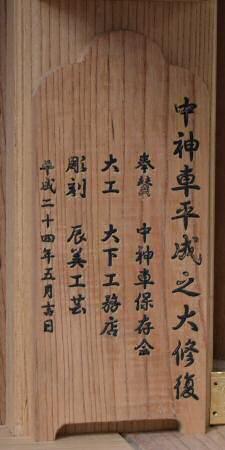 中神車平成之大修復
奉賛　中神車保存会
大工　大下工務店
彫刻　辰美工芸
平成二十四年五月吉日